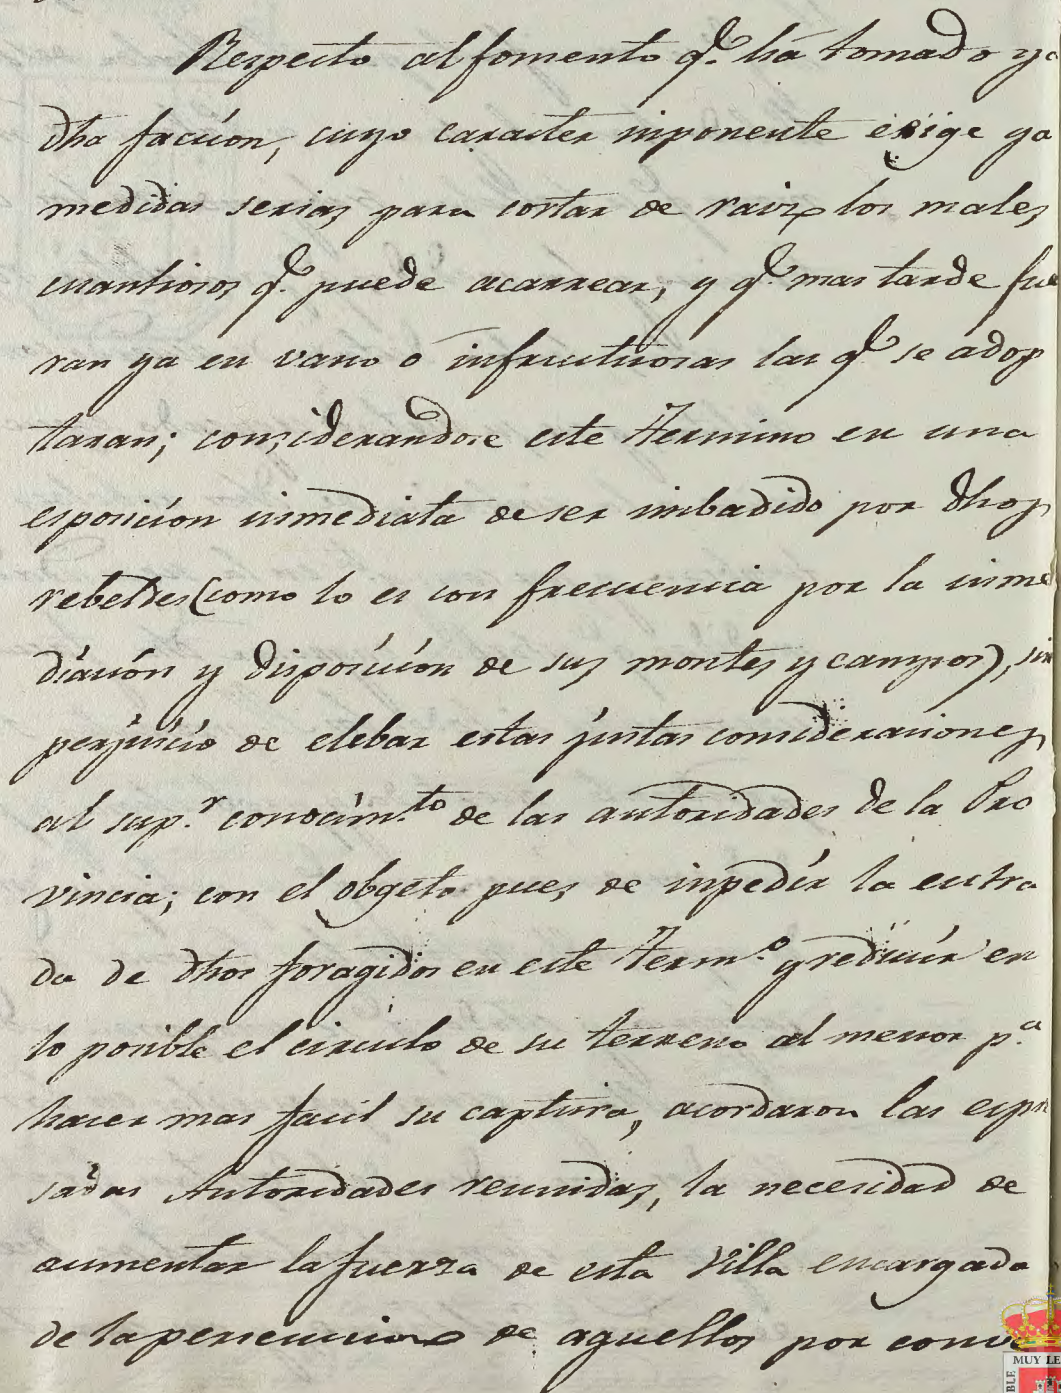 Respecto al fomento q.e há tomado ya
dha facción, cuyo caracter inponente exige ya
medidas serias para cortar de raiz los males
cuantiosos q.e puede acarrear, y q.e mas tarde fue
ran ya en vano o infructuosas las q.e se adop
taran; considerandose este Termino en una
esposición inmediata de ser imbadido por dhos
rebeldes (como lo es con frecuencia por la inme
diación y disposición de sus montes y campos), sin
perjuicio de elebar estas justas consideraciones
al sup.r conocim.to de las autoridades de la Pro
vincia; con el obgeto pues de inpedir la entra
da de dhos foragidos en este Term.o y reducir en
lo posible el circulo de su terreno al menor p.a
hacer mas facil su captura, acordaron las espre
sadas Autoridades reunidas, la necesidad de
aumentar la fuerza de esta Villa encargada
de la persecucion de aquellos por conve
MUY LE
BLE